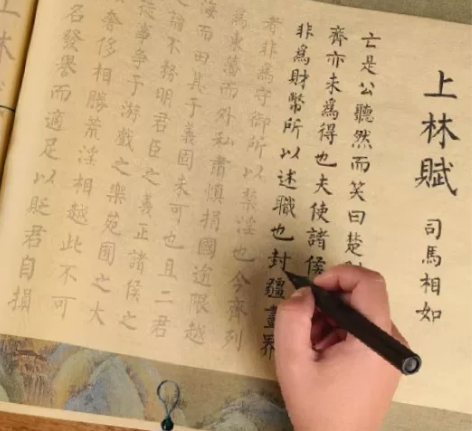 上林賦
司馬相如
亡是公聽然而笑曰楚
齊亦未為得也夫使諸侯
非為財幣所以述職也封疆畫界
者非為守御所以禁淫也今齊列
為東藩而外私肅慎捐國逾限越
海而田其于義固未可也且二君
之論不務明君臣之義正諸侯之
徒事爭于游戲之樂苑囿之大
奢侈相勝荒淫相越此不可
名發譽而適足以貶君自損
上林賦